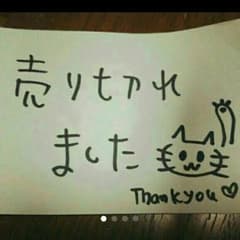 売り切れ
ました
Thankyou♡